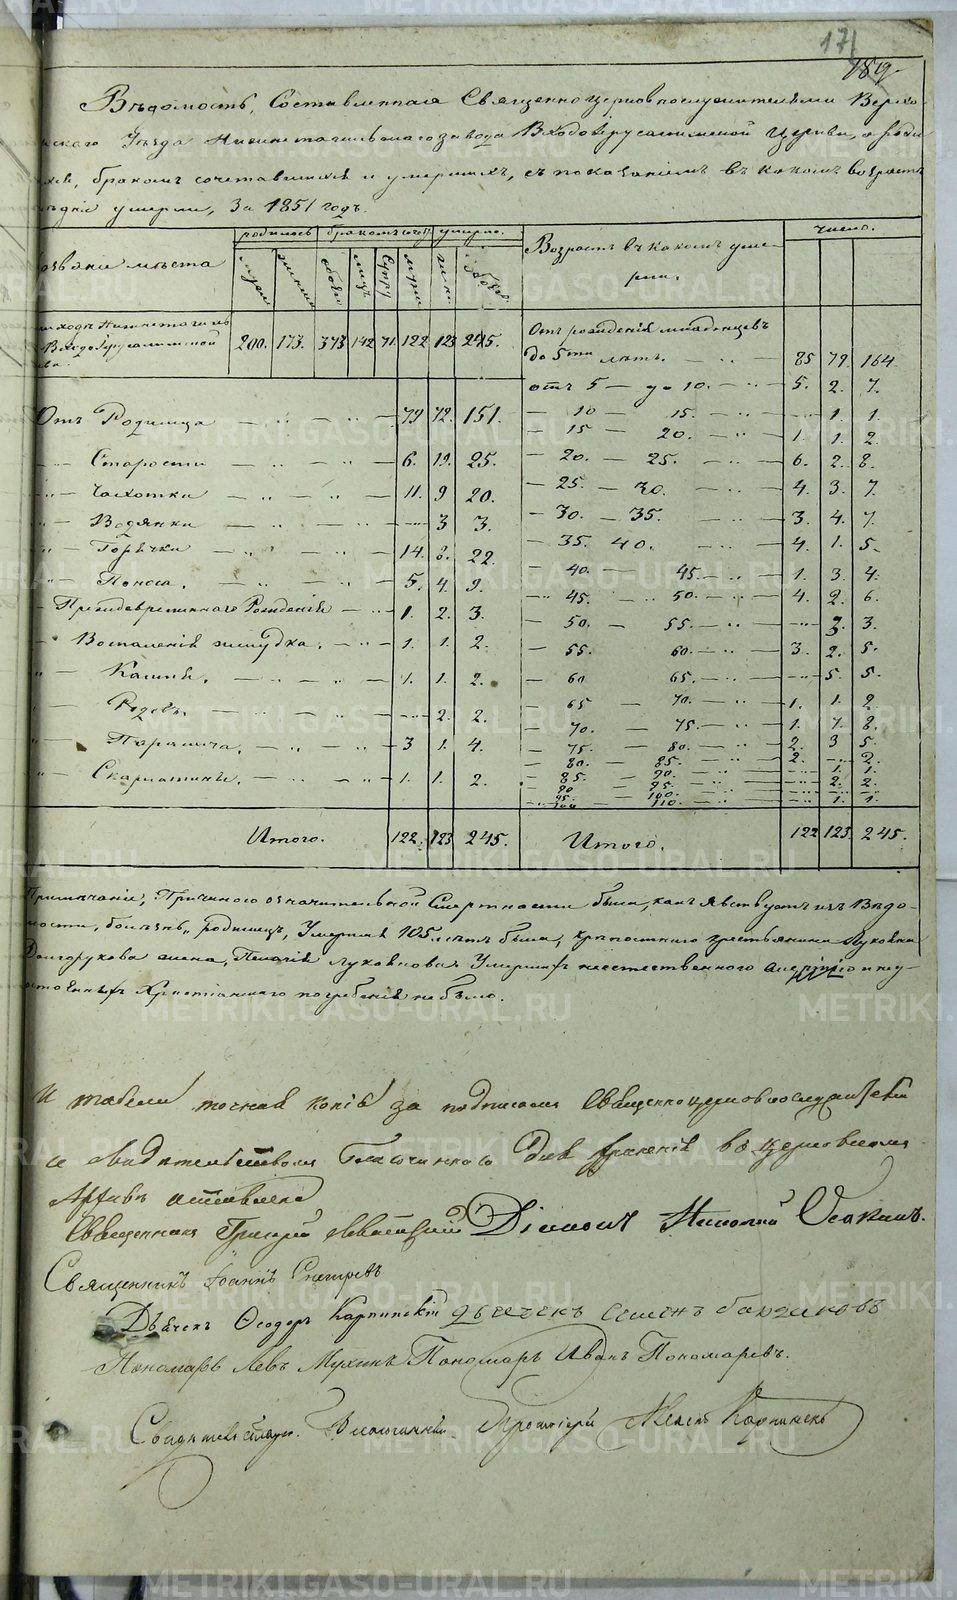 171
189
Вѣдомость, Составленная Священноцерковнослужителями Верхо-
Уѣзда Нижнетагильскаго завода Входоіерусалимской Церкви, о роди
бракомъ сочетавшихся и умершихъ, съ показаніемъ въ какомъ возрастѣ
умерли, за 1851 годъ.
родилось бракомъ умерло. Возрастъ въ какомъ умерли. число.
званіе мѣста муж женск обоего лицъ Супру муж жен обоего
Нижнетагильс
Входоіерусалимской 200. 173. 373 142 71. 122 123 245.
Отъ рожденія младенцевъ до 5ти лѣтъ. 85 79. 164.
отъ 5 — до 10. 5. 2. 7.
Отъ Родимца 79 72. 151.
— 10 — 15. 1. 1.
— 15 — 20. 1. 1. 2.
Старости 6. 19. 25.
— 20. — 25. 6. 2. 8.
Чахотки 11. 9 20.
— 25. — 30. 4. 3. 7.
Водянки 3 3.
— 30. — 35. 3. 4. 7.
Горячки 14. 8. 22.
— 35. 40. 4. 1. 5.
Поноса. 5. 4. 9.
— 40. 45. 1. 3. 4.
— 45. 50. 4. 2. 6.
Преждевременнаго Рожденія 1. 2. 3.
— 50. 55. 3. 3.
Воспаленія желудка. 1. 1. 2.
— 55. 60. 3. 2. 5.
Кашля. 1. 1. 2.
— 60 65. 5. 5.
Родовъ. 2. 2.
— 65 — 70. 1. 1. 2
— 70. — 75. 1. 7. 8.
Паралича. 3 1. 4.
— 75. — 80. 2. 3 5.
— 80. — 85. 2. 2.
Скарлатины. 1. 1. 2.
— 85. — 90. 1. 1.
90 — 95. 2. 2.
95. — 100.
100 — 110. 1. 1.
Итого. 122. 123 245. Итого. 122 123. 245.
Примѣчаніе, Причиною значительной Смертности была, какъ явствуетъ изъ Вѣдо-
мости, болѣзнь, родимецъ, Умершая 105 лѣтъ была, крѣпостнаго крестьянина
Долгорукова жена, Пелагія Умершихъ неестественною смертію и неу-
достоенныхъ Христіанскаго погребенія не было.
И табели точная копія за подписомъ Священноцерковнослужителей
и свидѣтельствомъ Благочиннаго для храненія въ церковномъ
Архивѣ оставлена
Священникъ Григорій Діаконъ Николай Осокинъ.
Священникъ Іоаннъ
Дьячекъ Ѳеодоръ Карпинскій дьячекъ Семенъ
Пономарь Левъ Мухинъ Пономарь Иванъ Пономаревъ.
Свидѣтельствовалъ Благочинный Протоіерей Карпинскій
METRIKI.GASO-URAL.RU